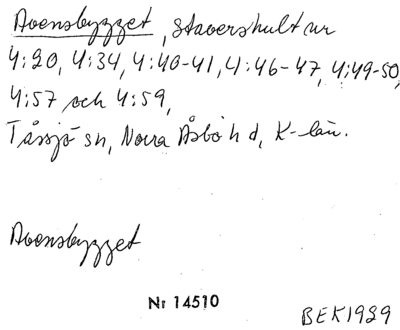 Avensbygget, Stavershult nr
4:20, 4:34, 4:40-41, 4:46-47, 4:49-50,
4:57 och 4:59,
Tåssjö sn, Norra Åsbo hd, K-län.
Avensbygget
Nr 14510
BEK1989